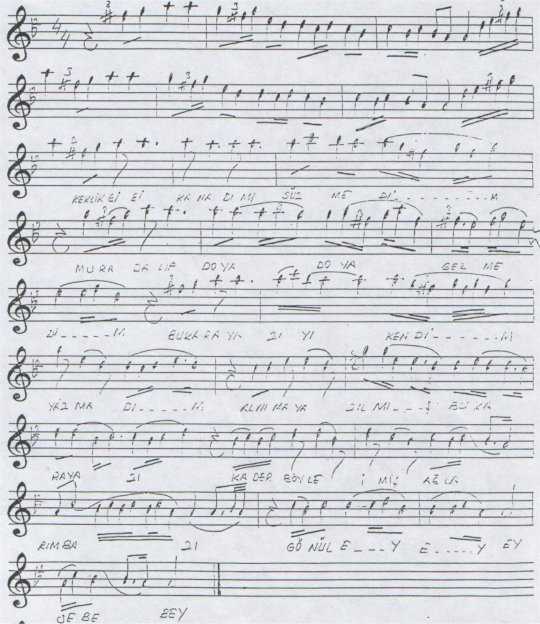 KEKLİK Gİ Bİ KA NA DI MI SÜZ ME Dİ - - - - - M
MURA DA LIP DOYA DO YA GEZ ME
Dİ - - - - - M BU KA RA YA ZI YI KEN Dİ - - - - - M
YAZ MA DI - - - - - M ALNI MA YA ZIL MI - - - Ş BU KA
RAYA ZI KA DER BÖYLE İ MİŞ AĞ LA
RIM BA ZI GÖ NÜL E - - - Y E - - - - - Y EY
BE BE EEY